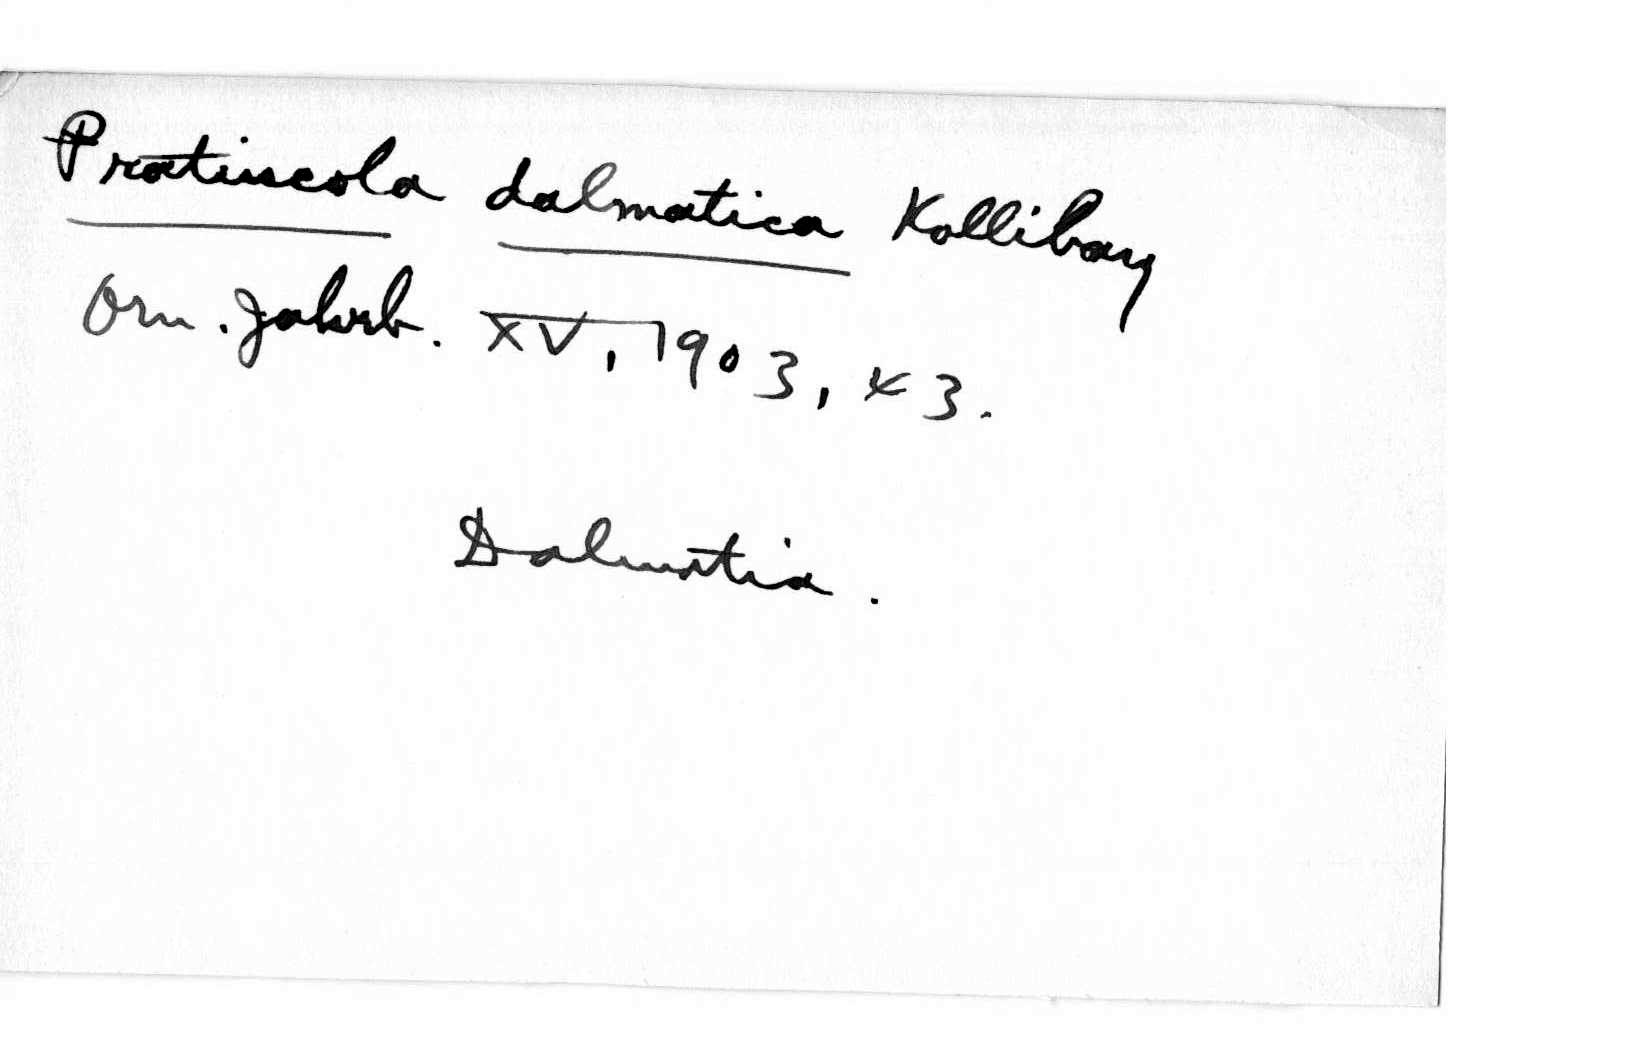 Pratincola dalmatica Kollibay
Orn. Jahrb. XV, 1903, 43.
Dalmatia.